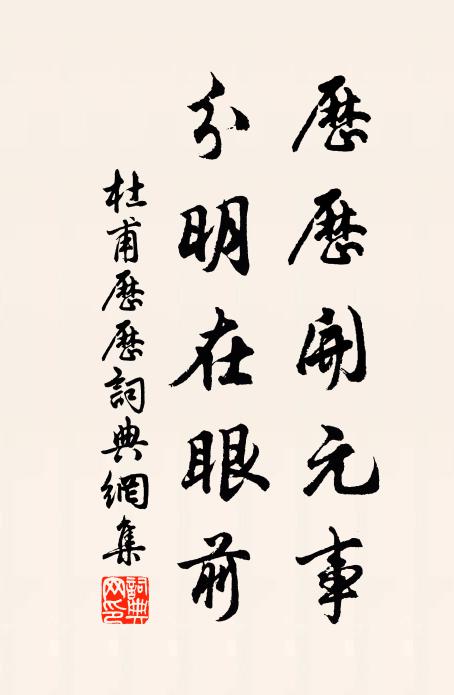 歷歷開元事
分明在眼前
杜甫歷歷詞典網集
詞典网印